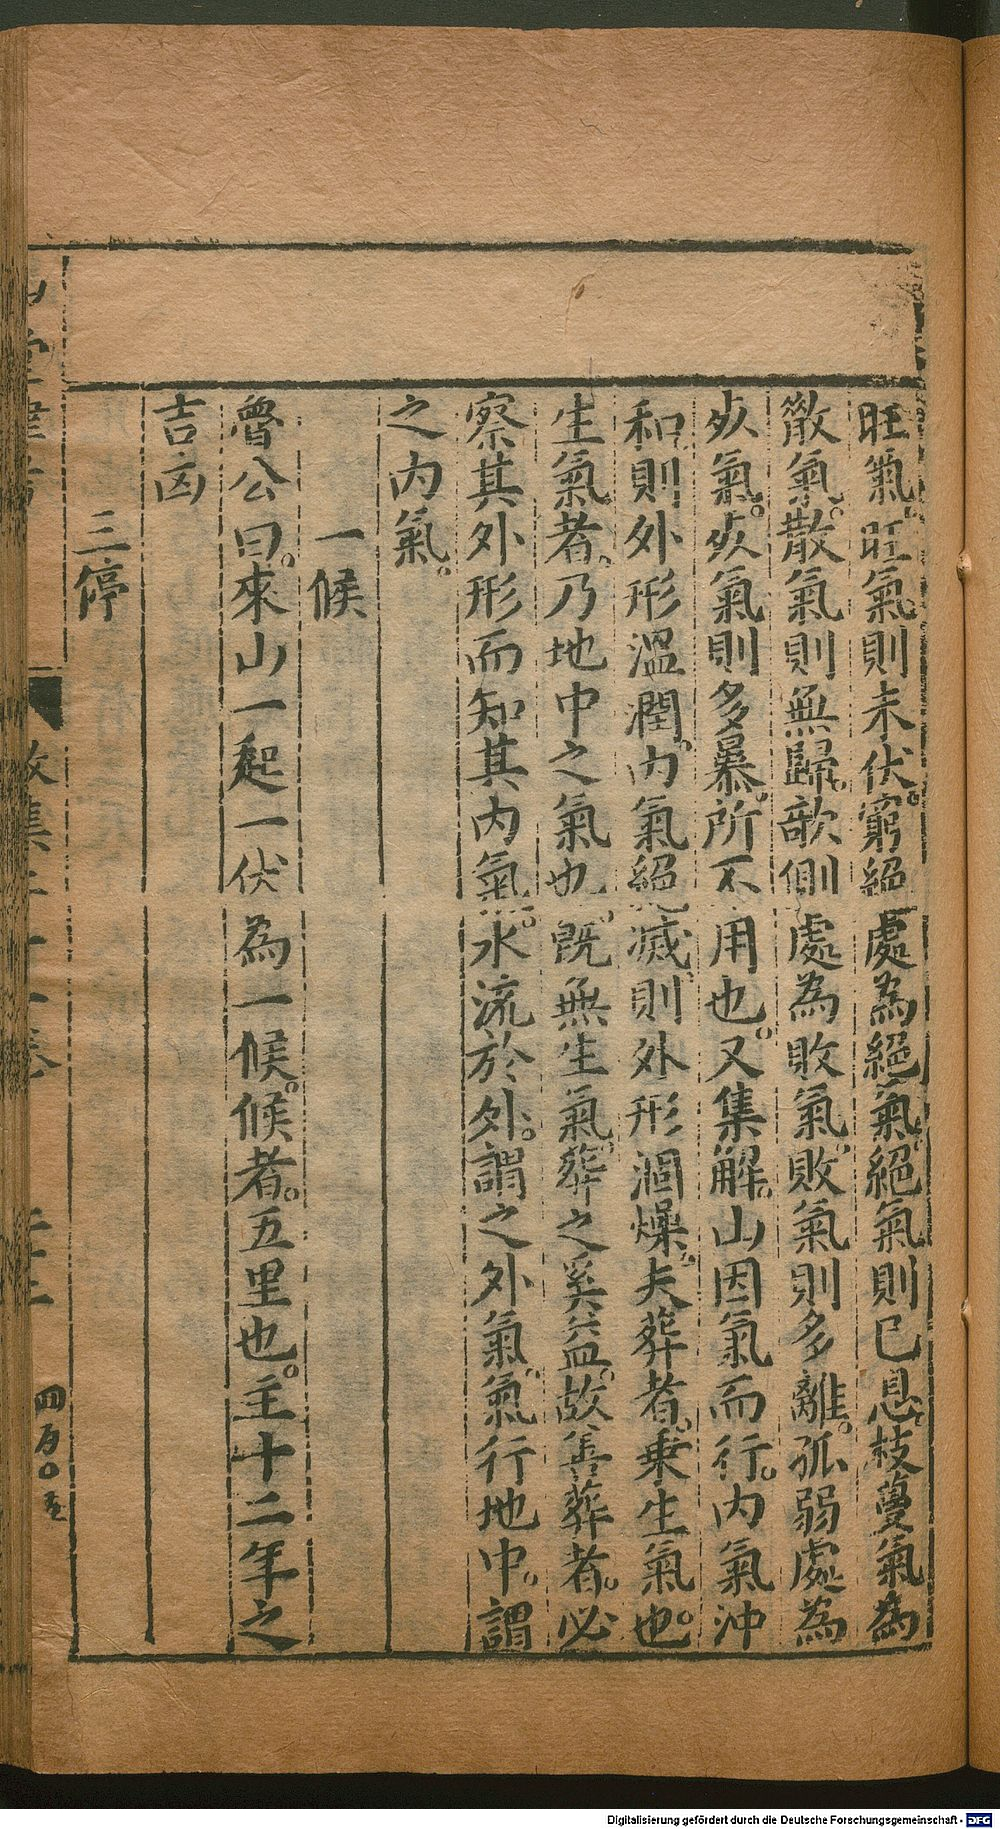 旺氣。旺氣則未伏。窮絕處為絕氣。絕氣則已息。枝蔓氣為
散氣。散氣則無歸。欹側處為敗氣。敗氣則多離。孤弱處為
㱙氣。㱙氣則多暴。所不用也。又集解。山因氣而行。內氣沖
和。則外形溫潤。內氣絕滅。則外形涸燥。夫葬者。乘生氣也。
生氣者。乃地中之氣也。既無生氣。葬之奚益。故善葬者。必
察其外形而知其內氣。水流於外。謂之外氣。氣行地中。謂
之內氣。
一候
曾公曰。來山一起一伏為一候。候者。五里也。主十二年之
吉凶
三停
山堂肆考
徵集二十一卷
四百〇五
Digitalisierung gefördert durch die Deutsche Forschungsgemeinschaft - DFG